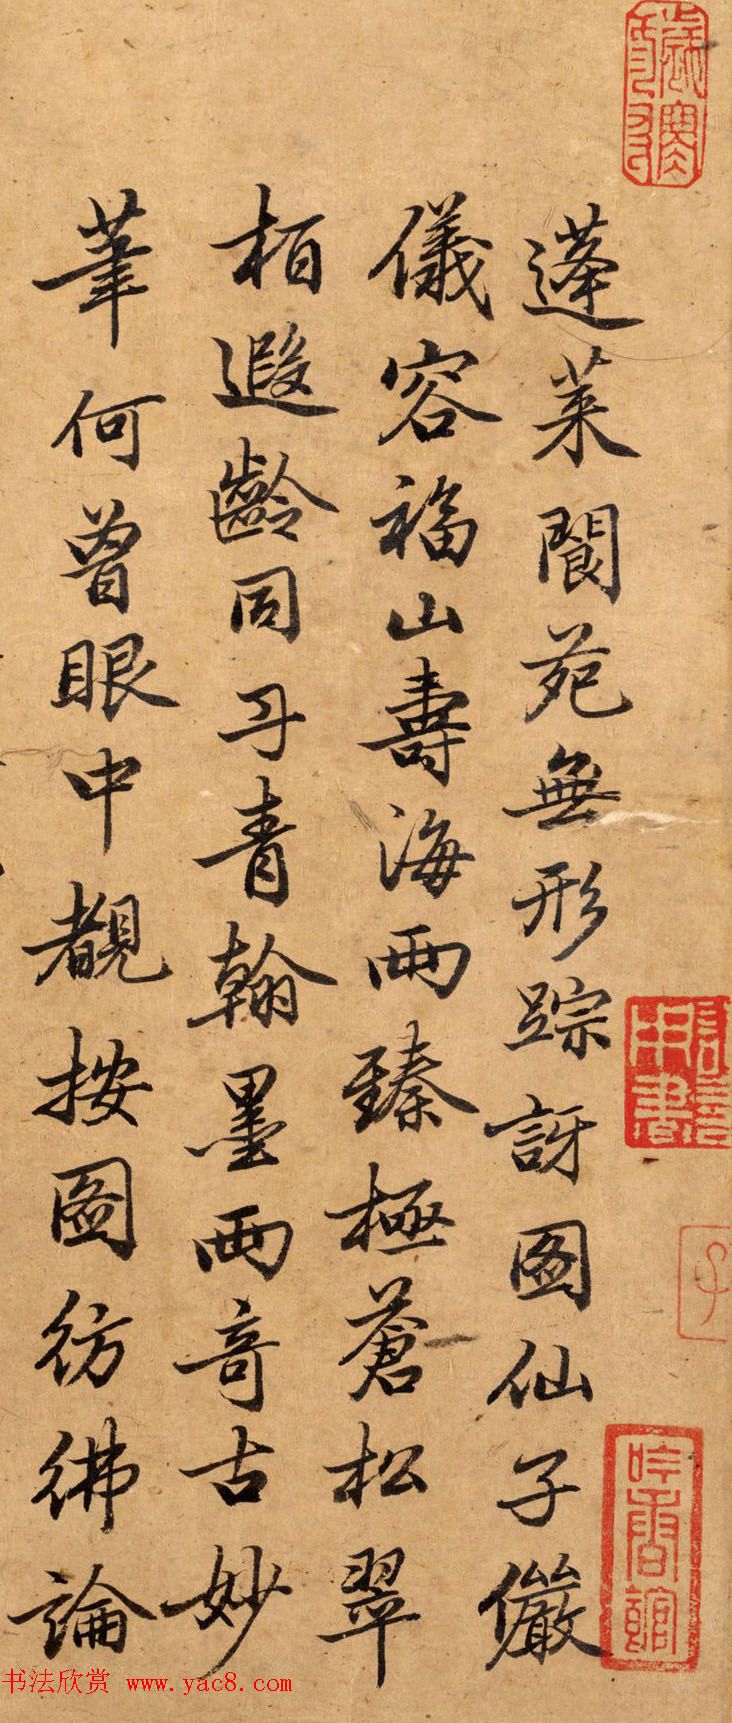 蓬萊閬苑無形踪訝图仙子儼
儀容福山壽海兩臻極蒼松翠
柏遐齡同丹青翰墨兩奇古妙
筆何曾眼中覩按图彷彿論
吟香館
书法欣赏 www.yac8.com